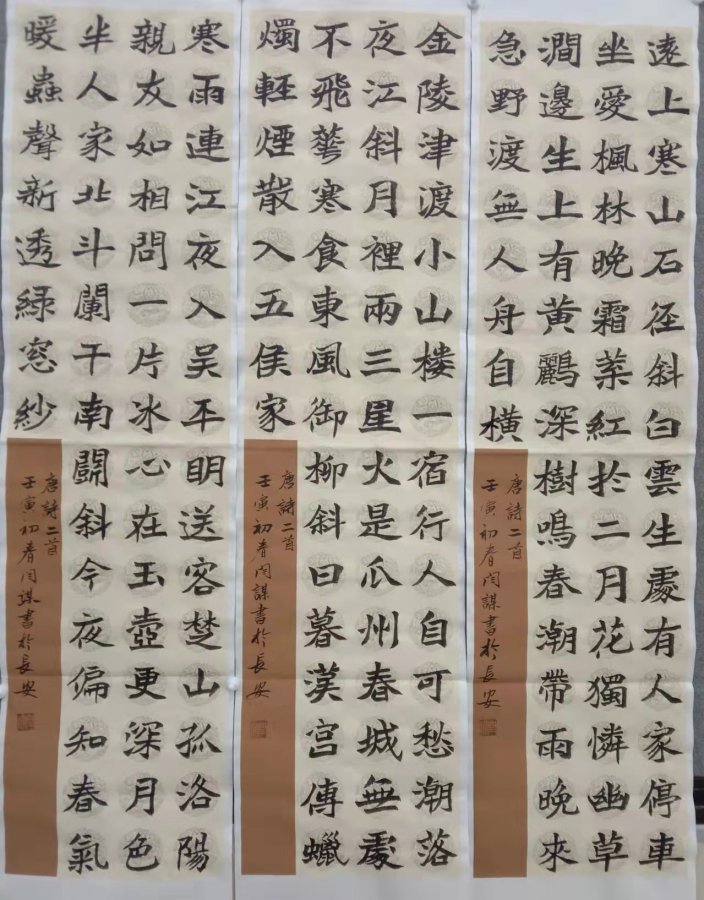 遠上寒山石径斜白雲生處有人家停車
坐愛楓林晚霜葉紅於二月花獨憐幽草
澗邊生上有黄鸝深樹鳴春潮帶雨晚來
急野渡無人舟自横
唐詩二首
壬寅初春闫謀書於長安
金陵津渡小山楼一宿行人自可愁潮落
夜江斜月裡兩三星火是瓜州春城無處
不飛華寒食東風御柳斜日暮漢宫傳蠟
燭輕煙散入五侯家
唐詩二首
壬寅初春闫謀書於長安
寒雨連江夜入吴平明送客楚山孤洛陽
親友如相問一片冰心在玉壺更深月色
半人家北斗闌干南闘斜今夜偏知春氣
暖蟲聲新透緑窓紗
唐詩二首
壬寅初春闫謀書於長安